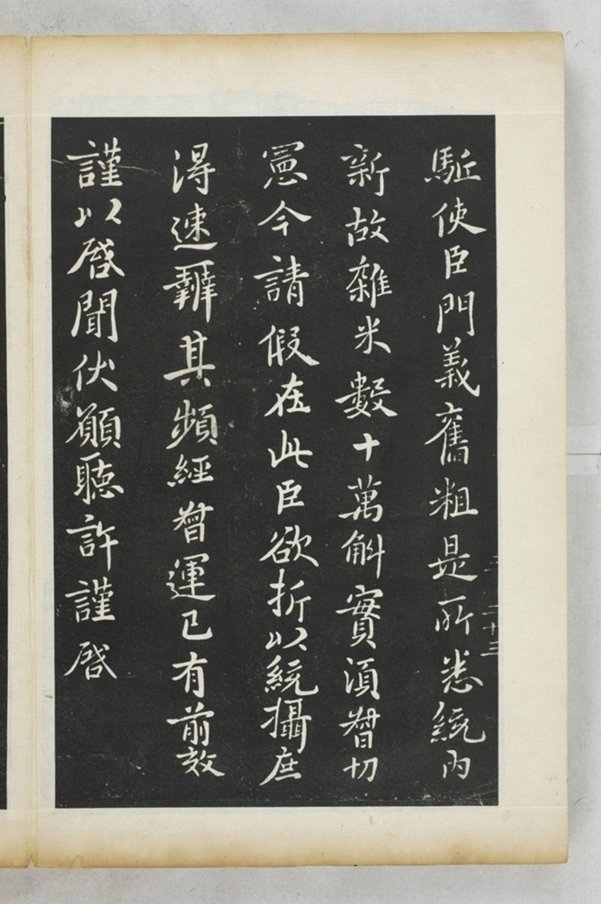 駈使臣門義舊粗是所悉統内
新故雜米數十萬斛實須督切
憲今請假在此臣欲折以統攝庶
得速辦其頻經督運已有前效
謹以啓聞伏願聽許謹啓